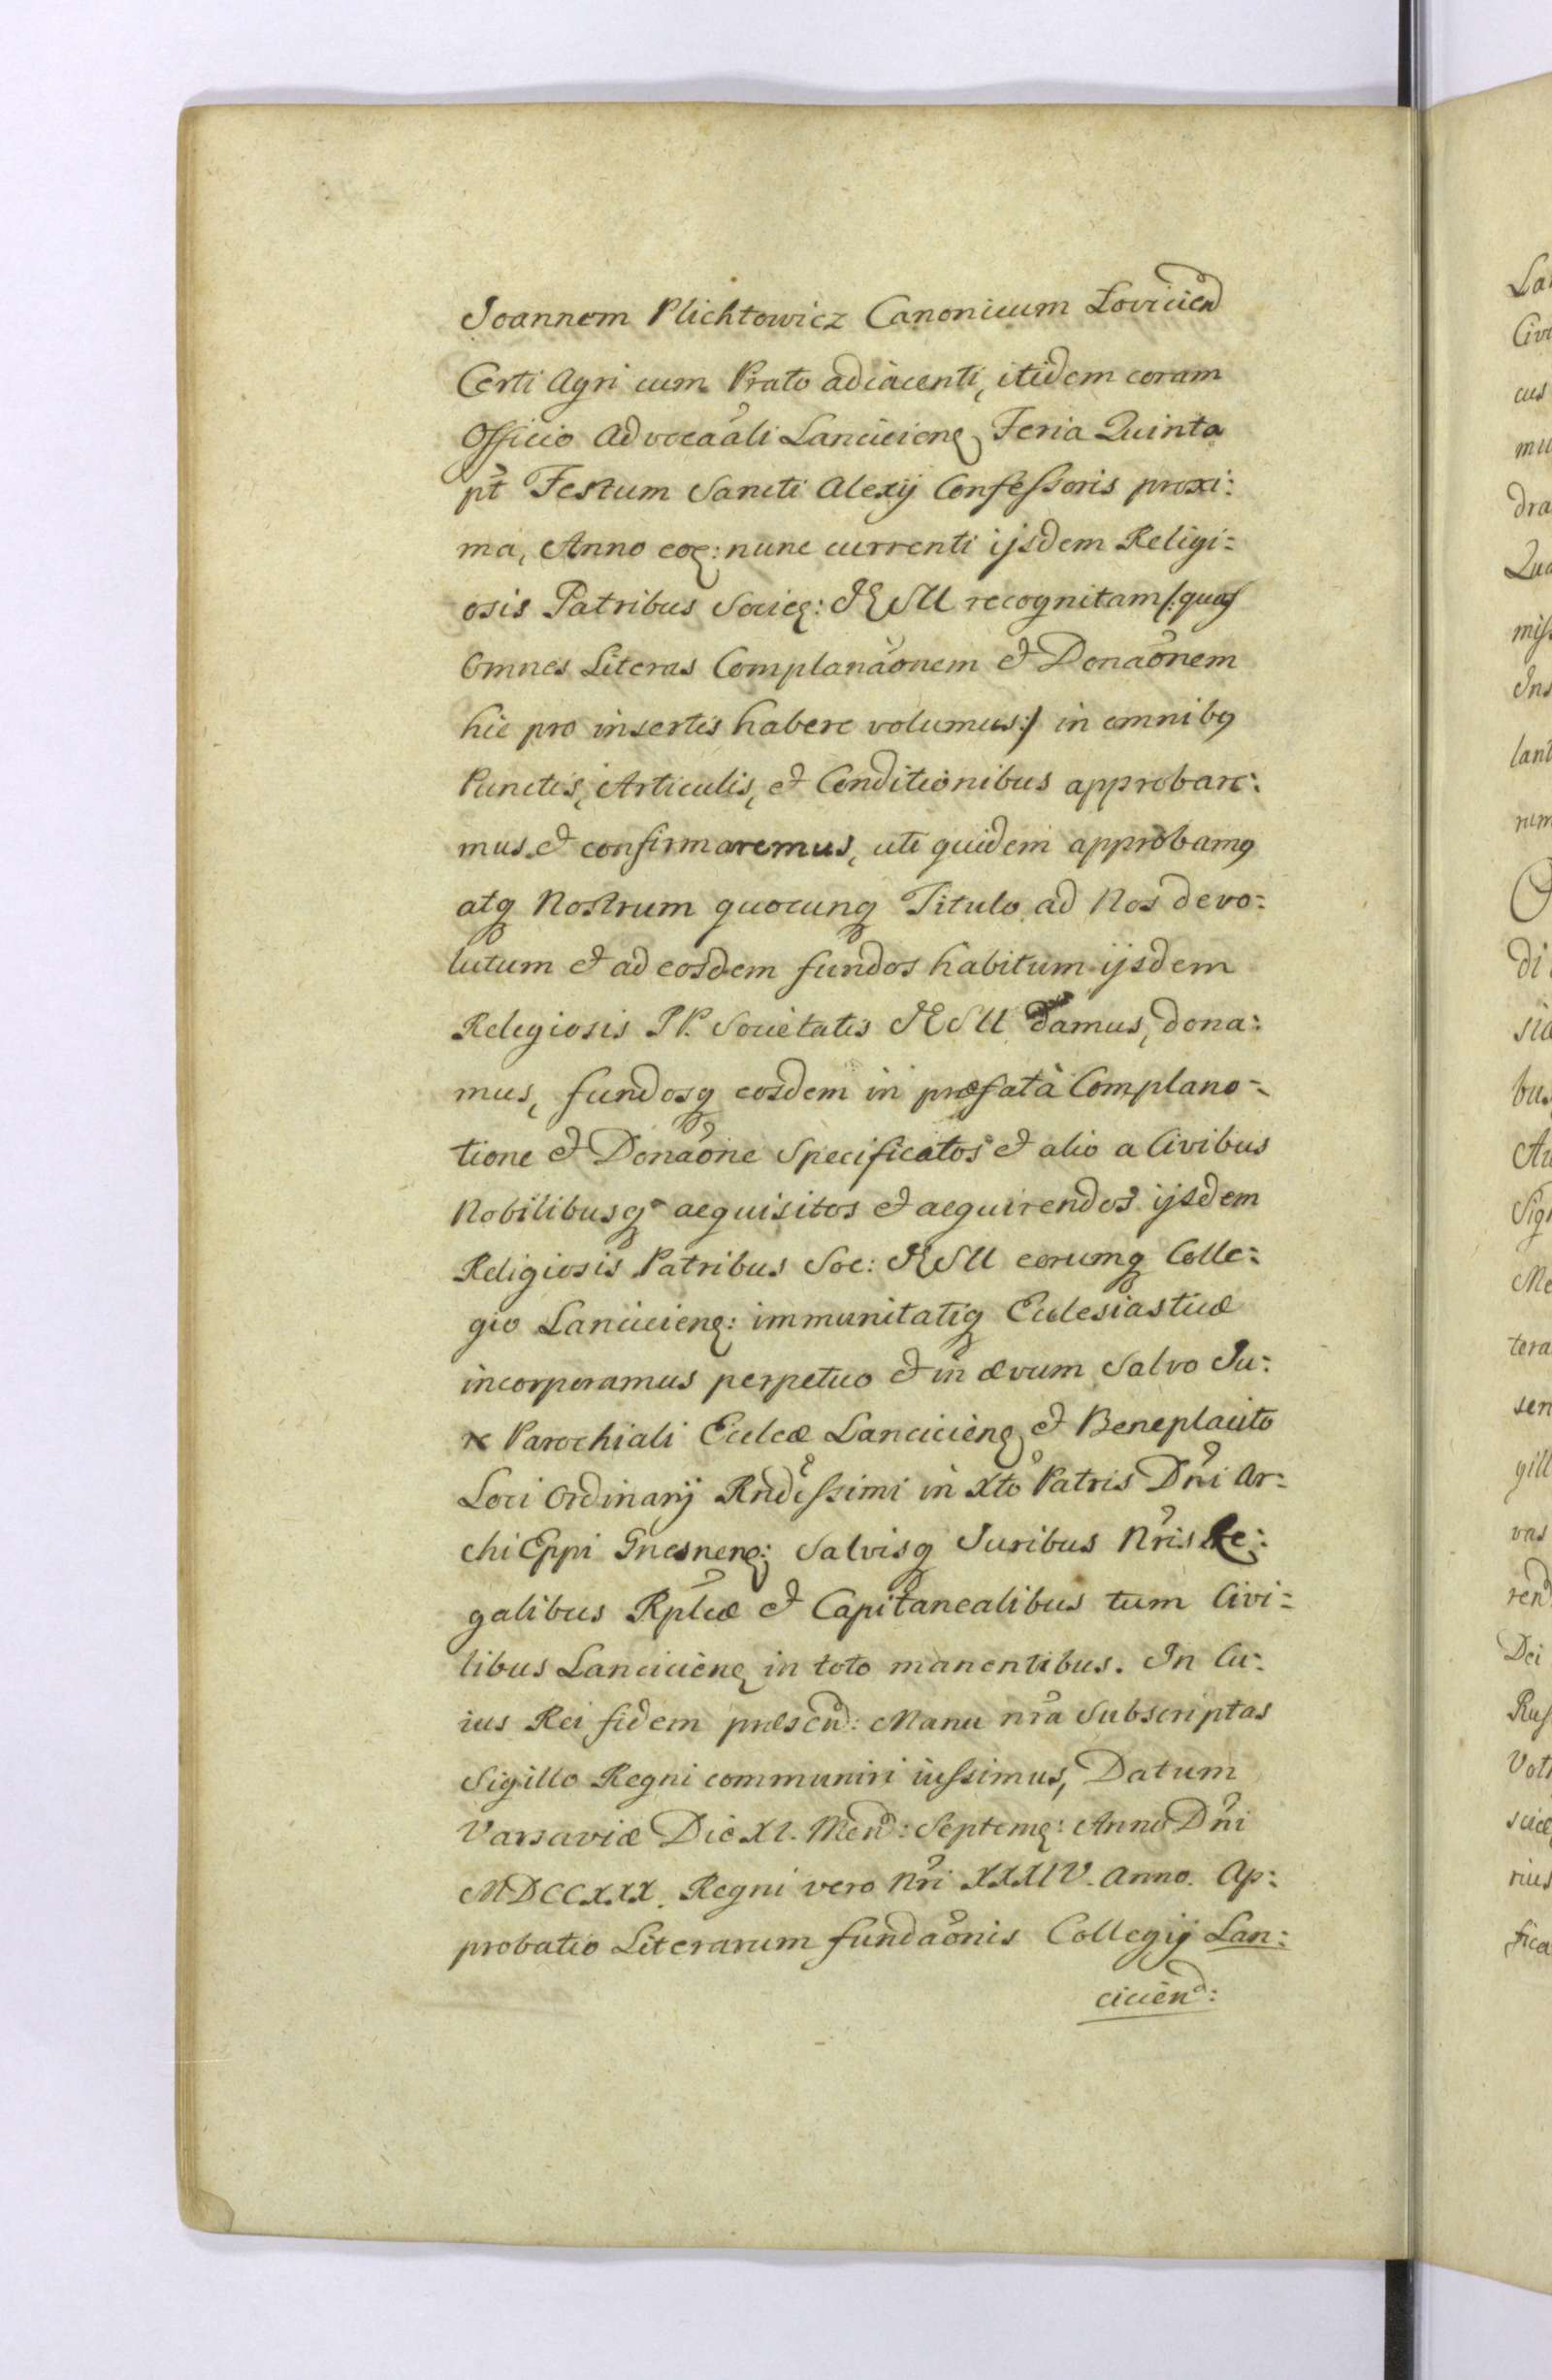 Joannem Plichtowicz Canonicum Loviciens
Certi Agri cum Prato adiacenti, itidem coram
Officio Advocaãli Lancicieng Feria Quinta
pt̃ Festum Sancti Alexij Confessoris proxi:
ma, Anno eoq: nunc currenti ijsdem Religi:
osis Patribus Socieq: JESU recognitam /:quas
Omnes Literas Complanaõnem et Donaõnem
hic pro insertis habere volumus:/ in omnibq
Punctis, Articulis, et Conditionibus approbare:
mus et confirmaremus, uti quidem approbamq
atq Nostrum quocunq Titulo ad Nos devo:
lutum et ad eosdem fundos habitum ijsdem
Religiosis PP. Societatis JESU damus, dona:
mus, fundosq eosdem in præfatà Complana:
tione et Donaõne Specificatos et alio a Civibus
Nobilibusq aequisitos et aequirendos ijsdem
Religiosis Patribus Soc: JESU eorumq Colle:
gio Lancicieng: immunitatiq Ecclesiasticæ
incorporamus perpetuo et in ævum Salvo Ju:
re Parochiali Ecclcæ Lancicieng et Beneplacito
Loci Ordinarij Rndissimi in Xto Patris Dñi Ar:
chi Eppi Gnesneng: Salvisq Juribus Nr̃is Re:
galibus Rplcæ et Capitanealibus tum Civi:
libus Lancicieng in toto manentibus. In Cu:
ius Rei fidem præsen: Manu nr̃a Subscriptas
Sigillo Regni communiri iussimus, Datum
Varsaviæ Die XI. Men: Septemq: Anno Dñi
MDCCXXX. Regni vero Nr̃i XXXIV. Anno. Ap:
probatio Literarum fundaõnis Collegij Lan:
ciciens: